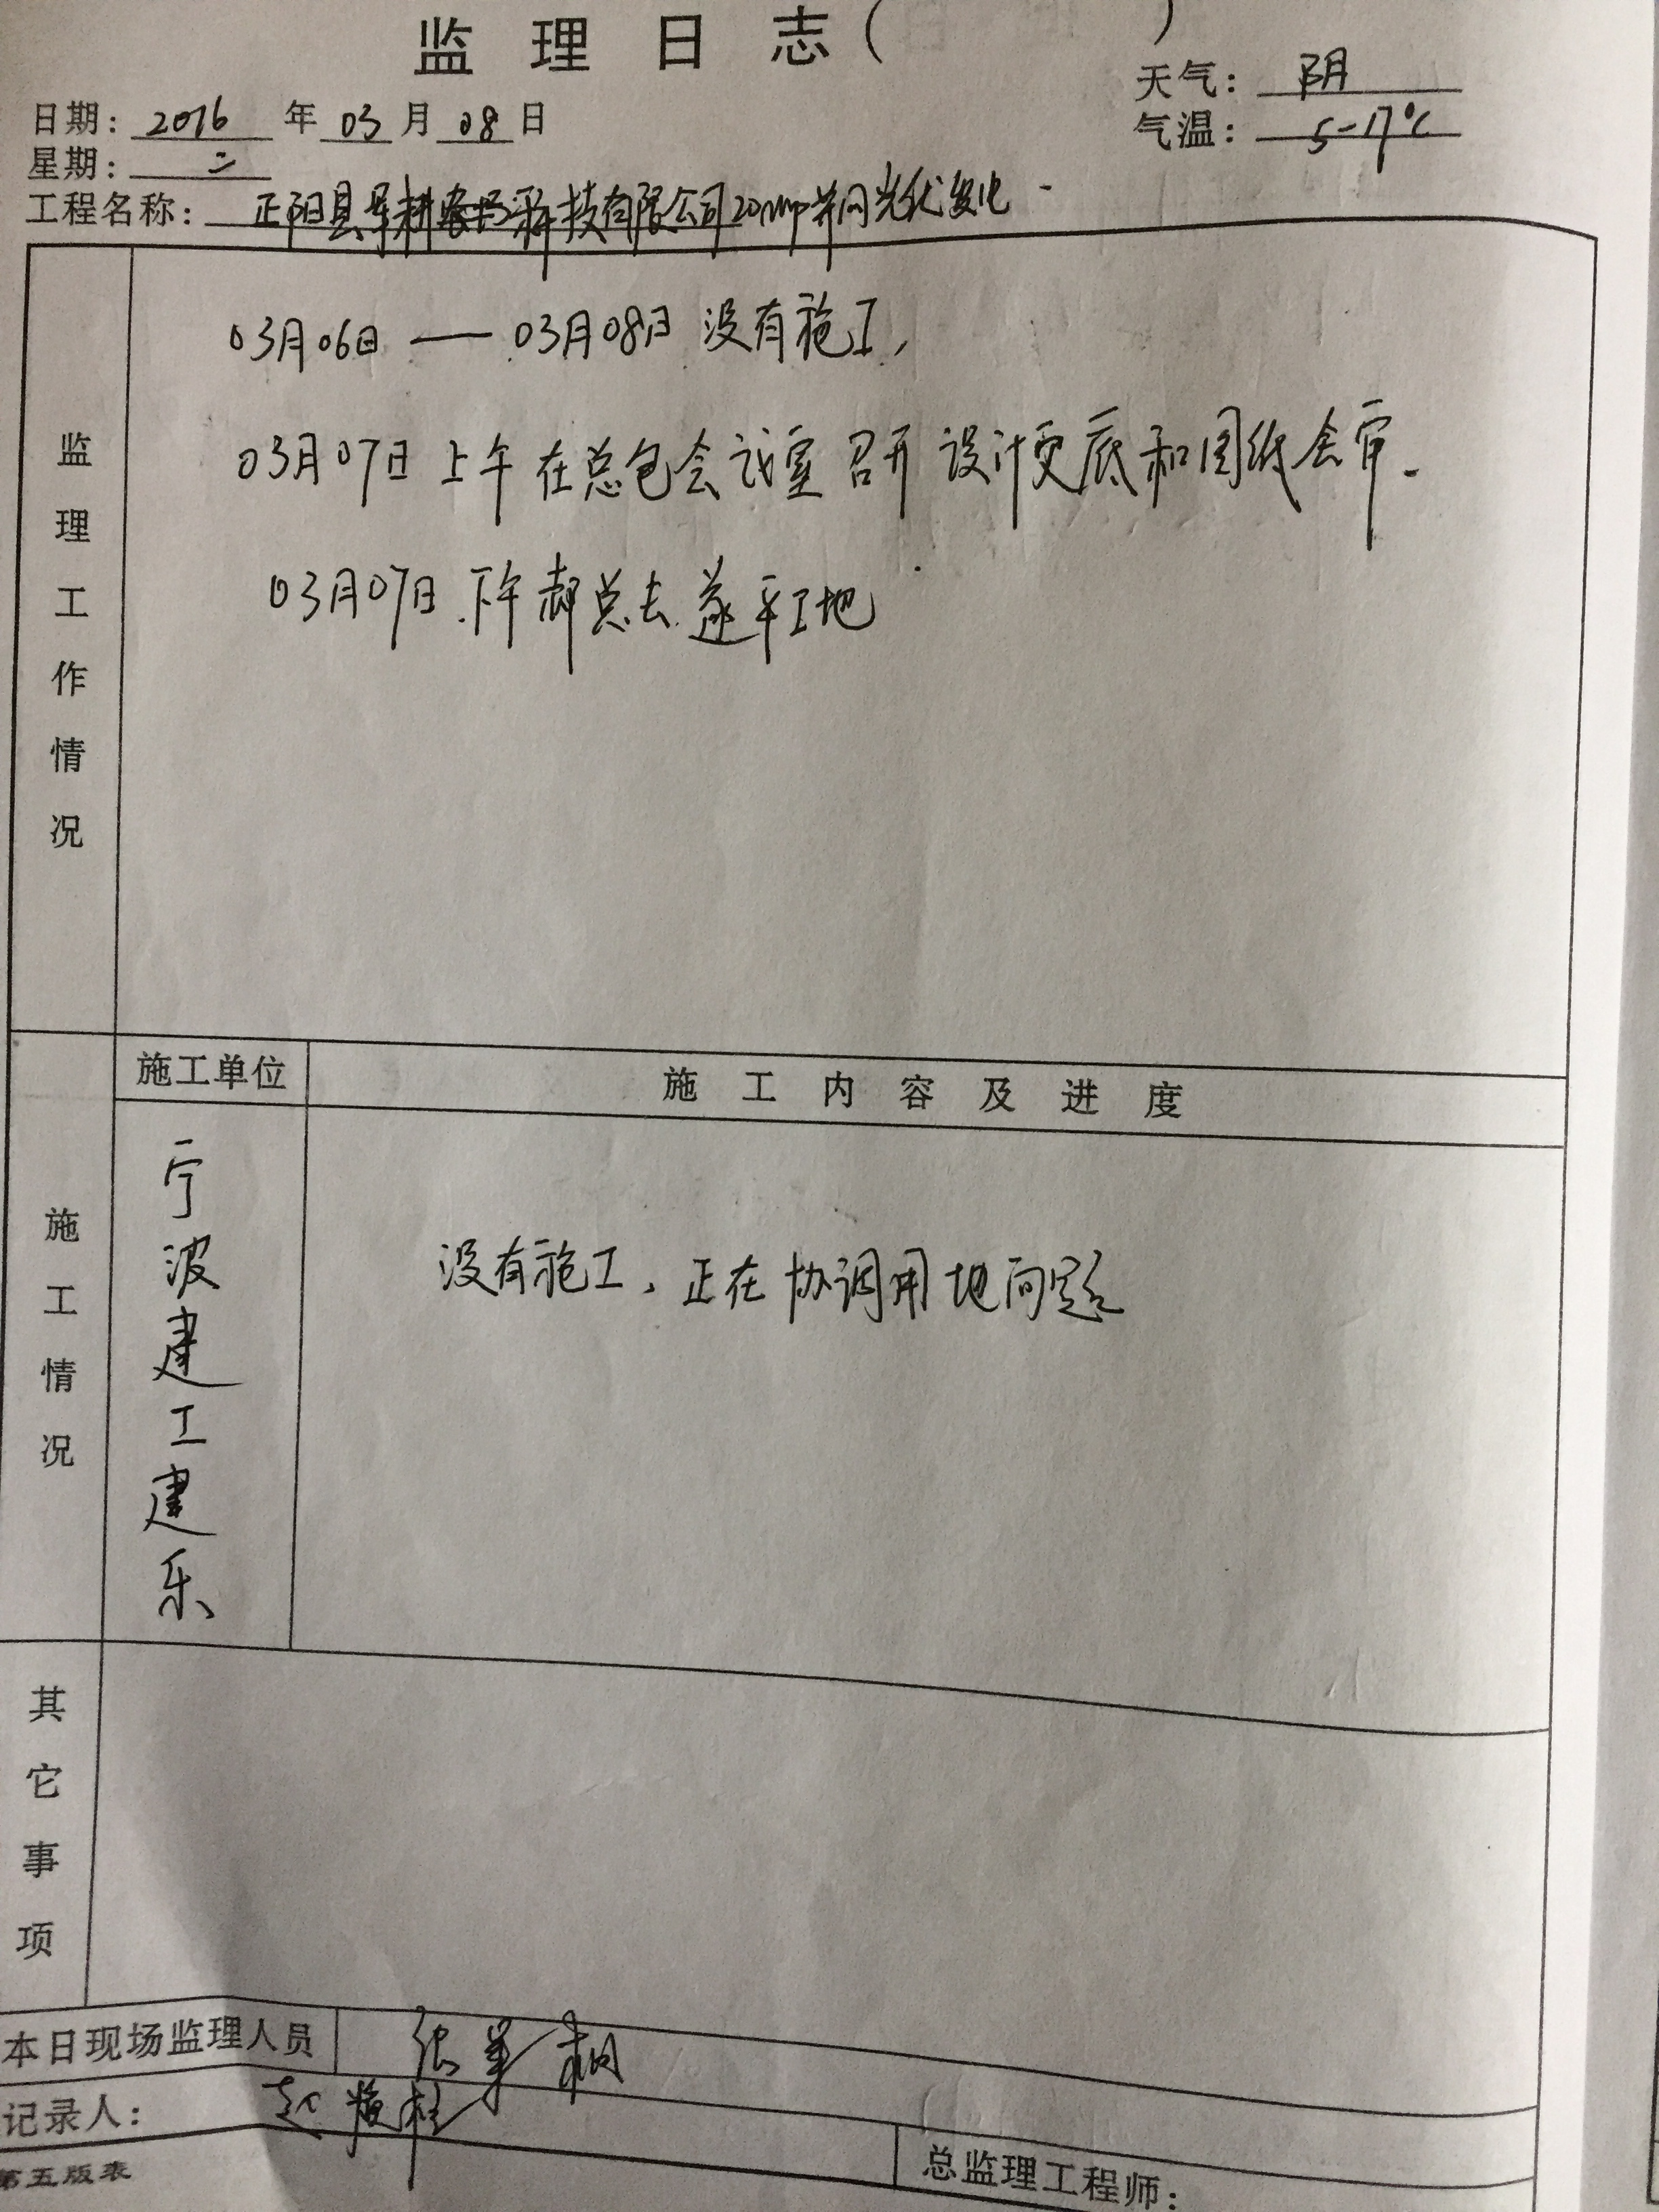 监理日志( )
天气: 阴
日期: 2016 年 03 月 08 日
气温: 5-17℃
星期: 二
工程名称: 正阳县 耕 科技有限公司20mwp并网光伏发电
监理工作情况
03月06日——03月08日没有施工,
03月07日上午在总包会议室召开设计交底和图纸会审.
03月07日下午郝总去遂平工地
施工单位
施工内容及进度
施工情况
宁波建工建乐
没有施工,正在协调用地问题
其它事项
本日现场监理人员
张
记录人:
赵
第五版表
总监理工程师: